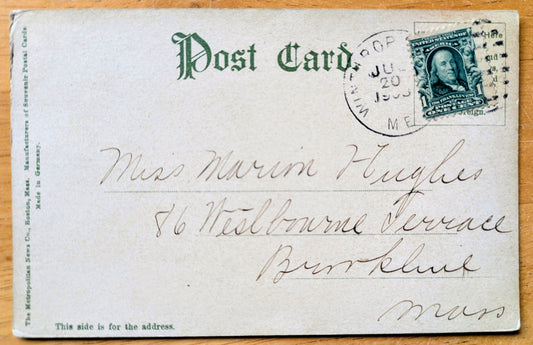 Post Card.
Here
WINTHROP
JUL
20
ME
UNITED STATES OF
AMERICA
1
ONE CENT
Foreign.
Miss Marion Hughes
86 Westbourne Terrace
Brookline
Mass
This side is for the address.
The Metropolitan News Co., Boston, Mass. Manufacturers of Souvenir Postal Cards
Made in Germany.